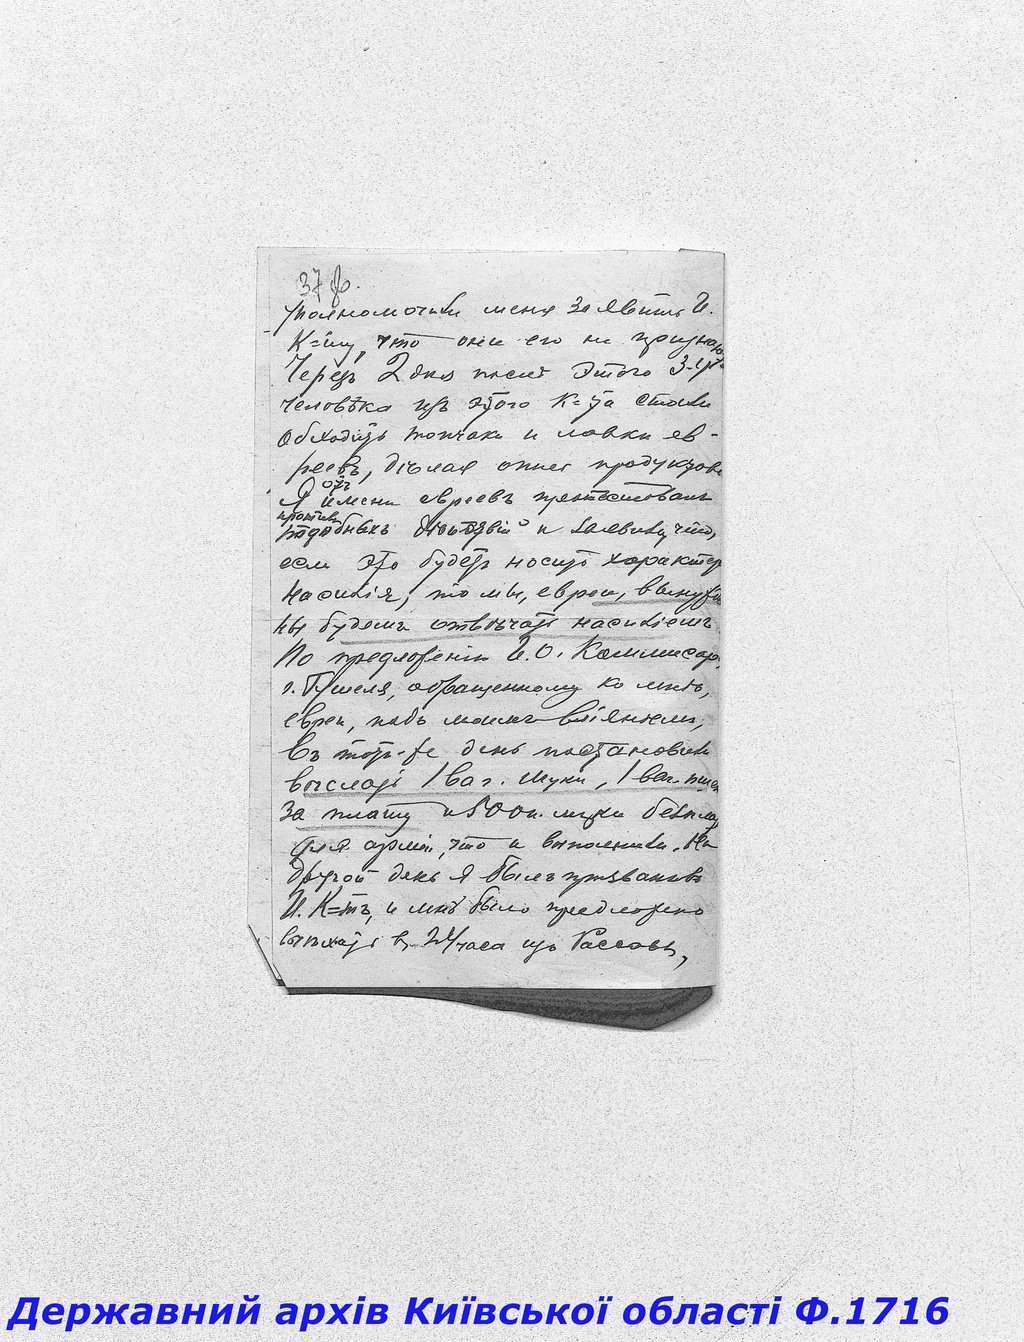 37 об.
уполномочили меня заявить И.
К=ту, что они его не признают
Черезъ 2 дня после этого 3-4
человѣка изъ этого К=та стали
обходить толчаки и лавки ев-
реевъ, дѣлая опись продуктовъ
Я отъ имени евреевъ протестовалъ
противъ подобныхъ дѣйствій и заявилъ, что,
если это будетъ носить характеръ
насилія, то мы, евреи, вынужде
ны будемъ отвѣчать насиліемъ.
По предложенію И.О. Коммисара
г. Пушеля, обращенному ко мнѣ,
евреи, подъ моимъ вліяніемъ,
въ тотъ-же день постановили
выслать 1 ваг. муки, 1 ваг. пшен
за плату и 500 п. муки безпла
для арміи, что и выполнили. На
другой день я былъ призванъ въ
И. К=тъ, и мнѣ было предложено
выѣхать въ 24 часа изъ Рассавы,
Державний архів Київської області Ф.1716